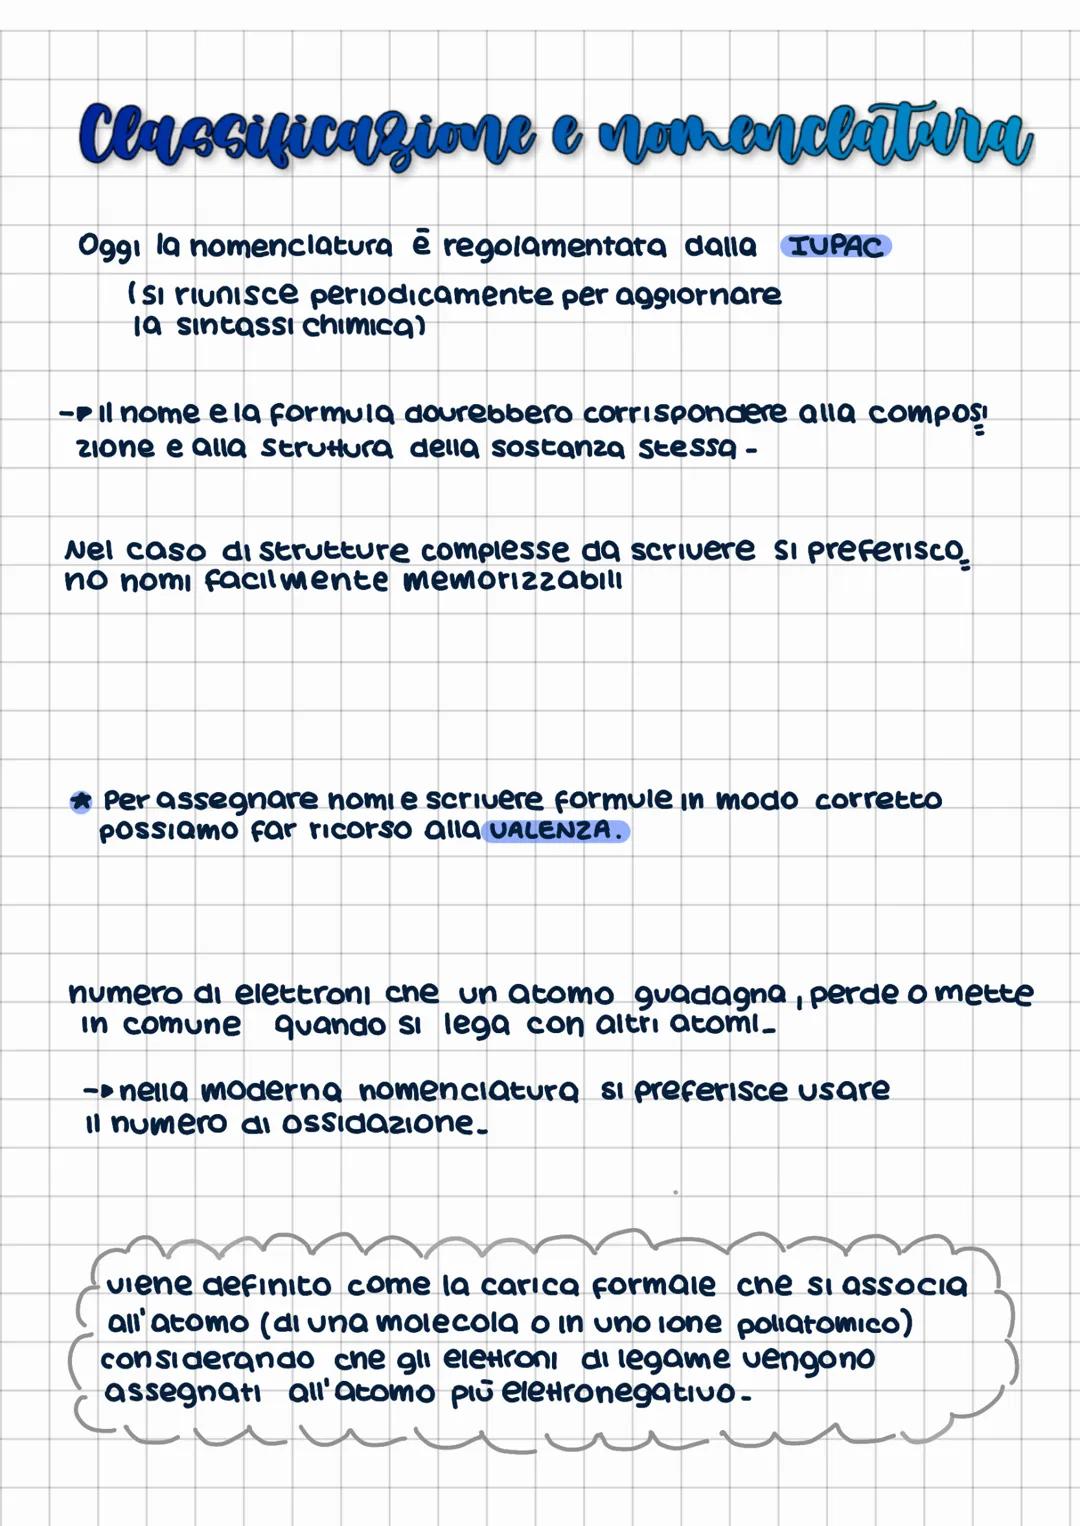 Classificazione e nomenclatura
Oggi la nomenclatura ē regolamentata dalla IUPAC
(si riunisce periodicamente per aggiornare
la sintassi chimica)
-► Il nome e la formula dovrebbero corrispondere alla composi=
zione e alla struttura della sostanza stessa -
Nel caso di strutture complesse da scrivere si preferisco=
no nomi facilmente memorizzabili
★ Per assegnare nomi e scrivere formule in modo corretto
possiamo far ricorso alla VALENZA.
numero di elettroni che un atomo guadagna, perde o mette
in comune quando si lega con altri atomi_
-► nella moderna nomenclatura si preferisce usare
il numero di ossidazione_
viene definito come la carica formale che si associa
all'atomo (di una molecola o in uno ione poliatomico)
considerando che gli elettroni di legame vengono
assegnati all'atomo piū elettronegativo -